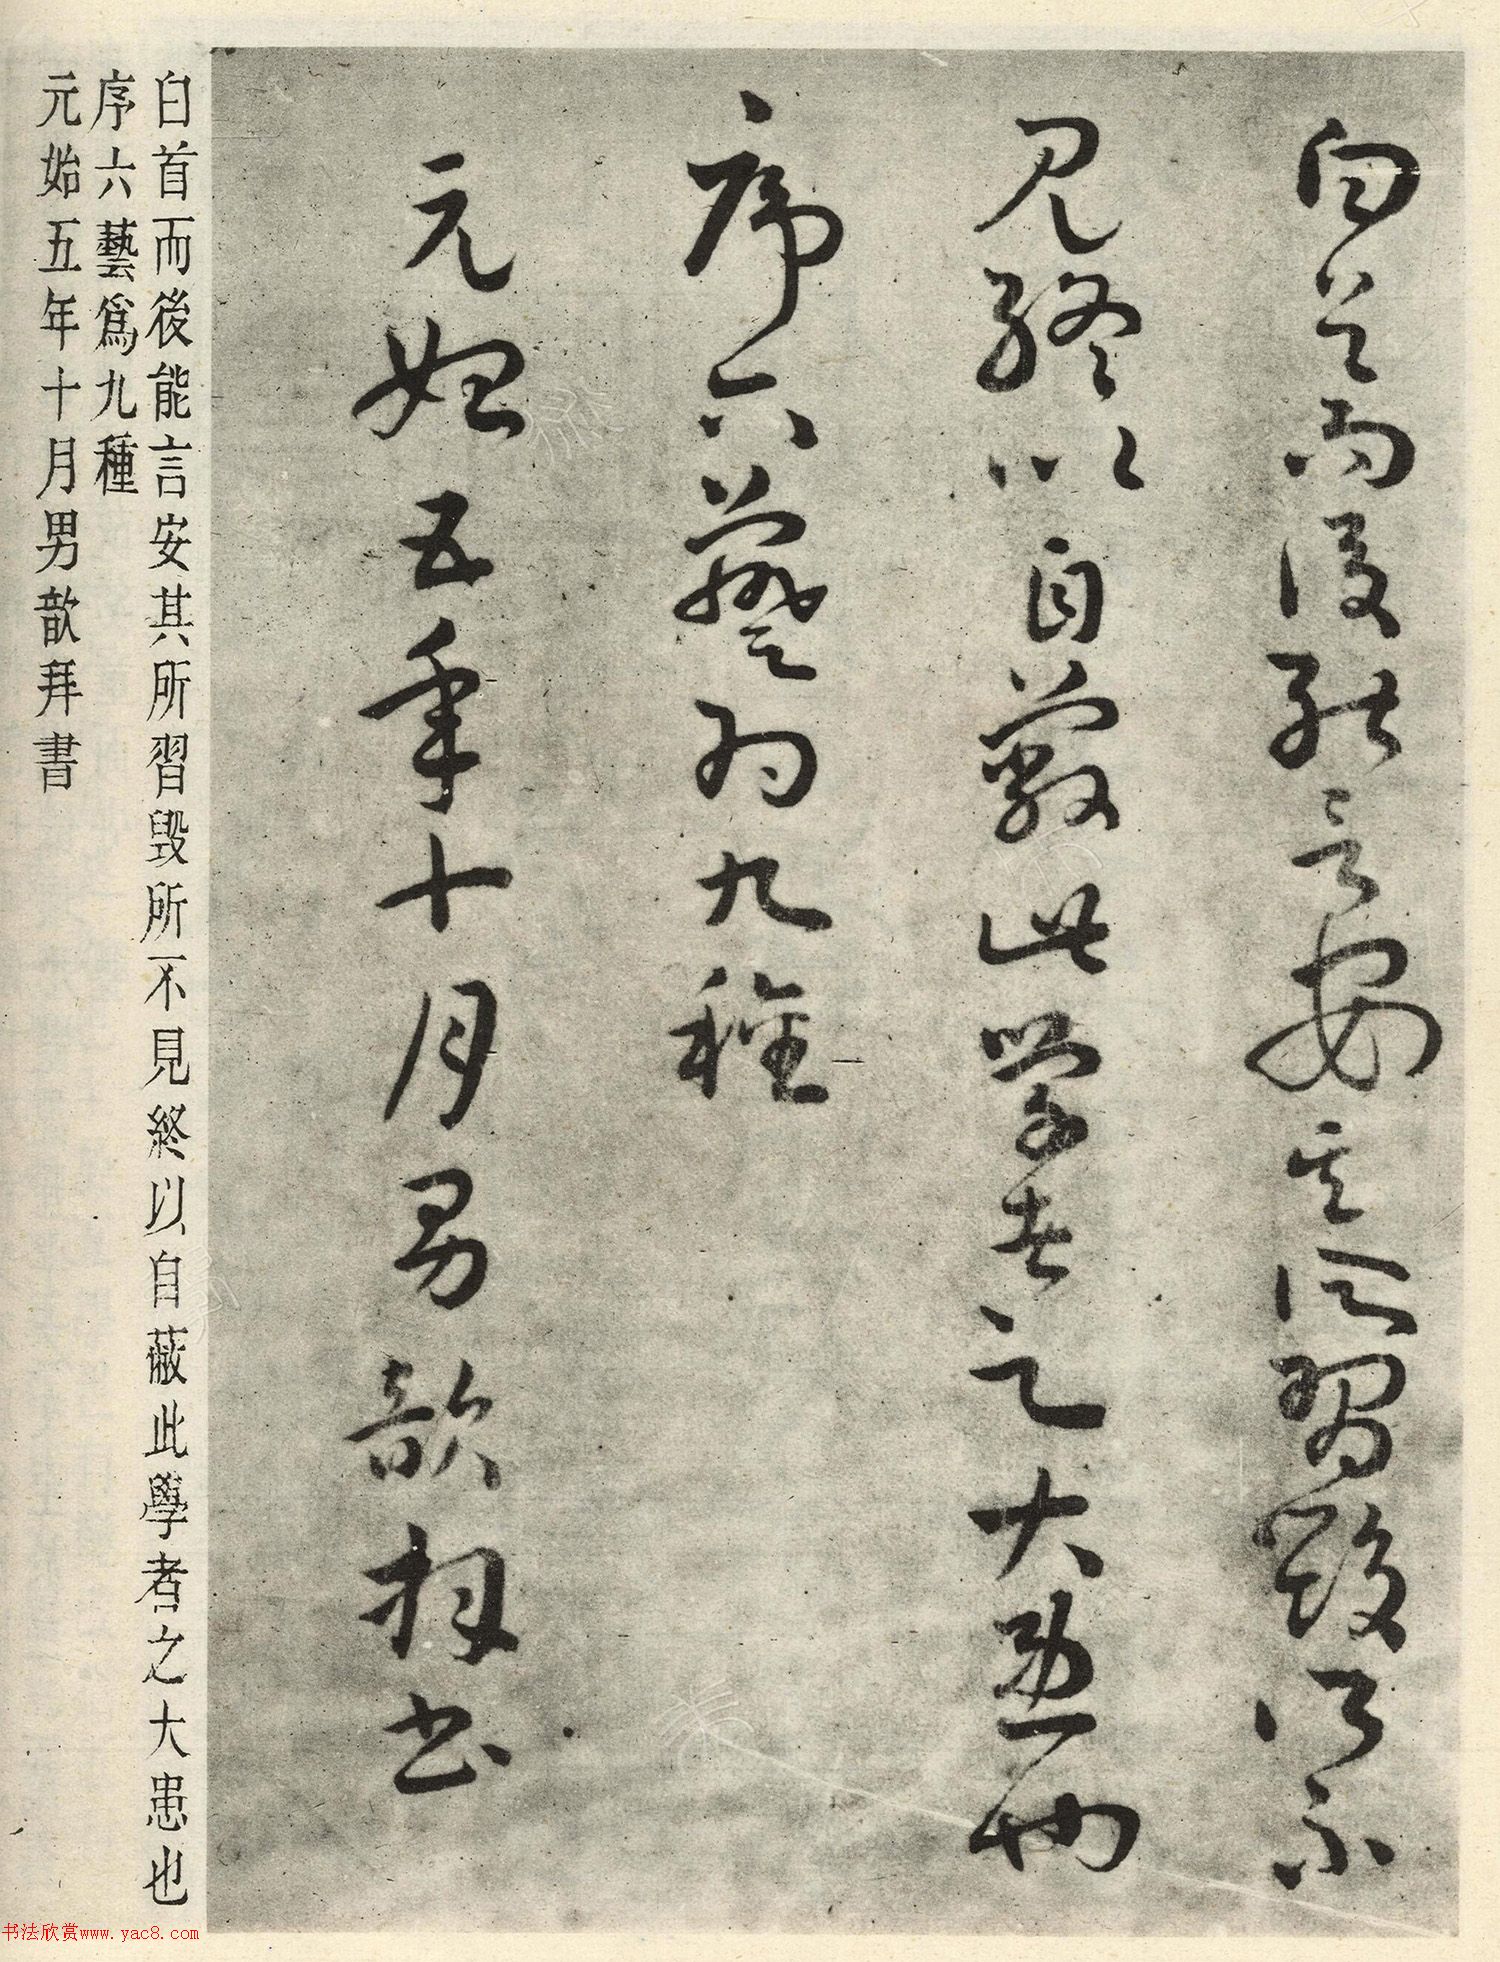 白首而後能言安其所習毀所不
見終以自蔽此學者之大患也
序六藝為九種
元始五年十月男歆拜書
白首而後能言安其所習毀所不見終以自蔽此學者之大患也
序六藝爲九種
元始五年十月男歆拜書
书法欣赏www.yac8.com